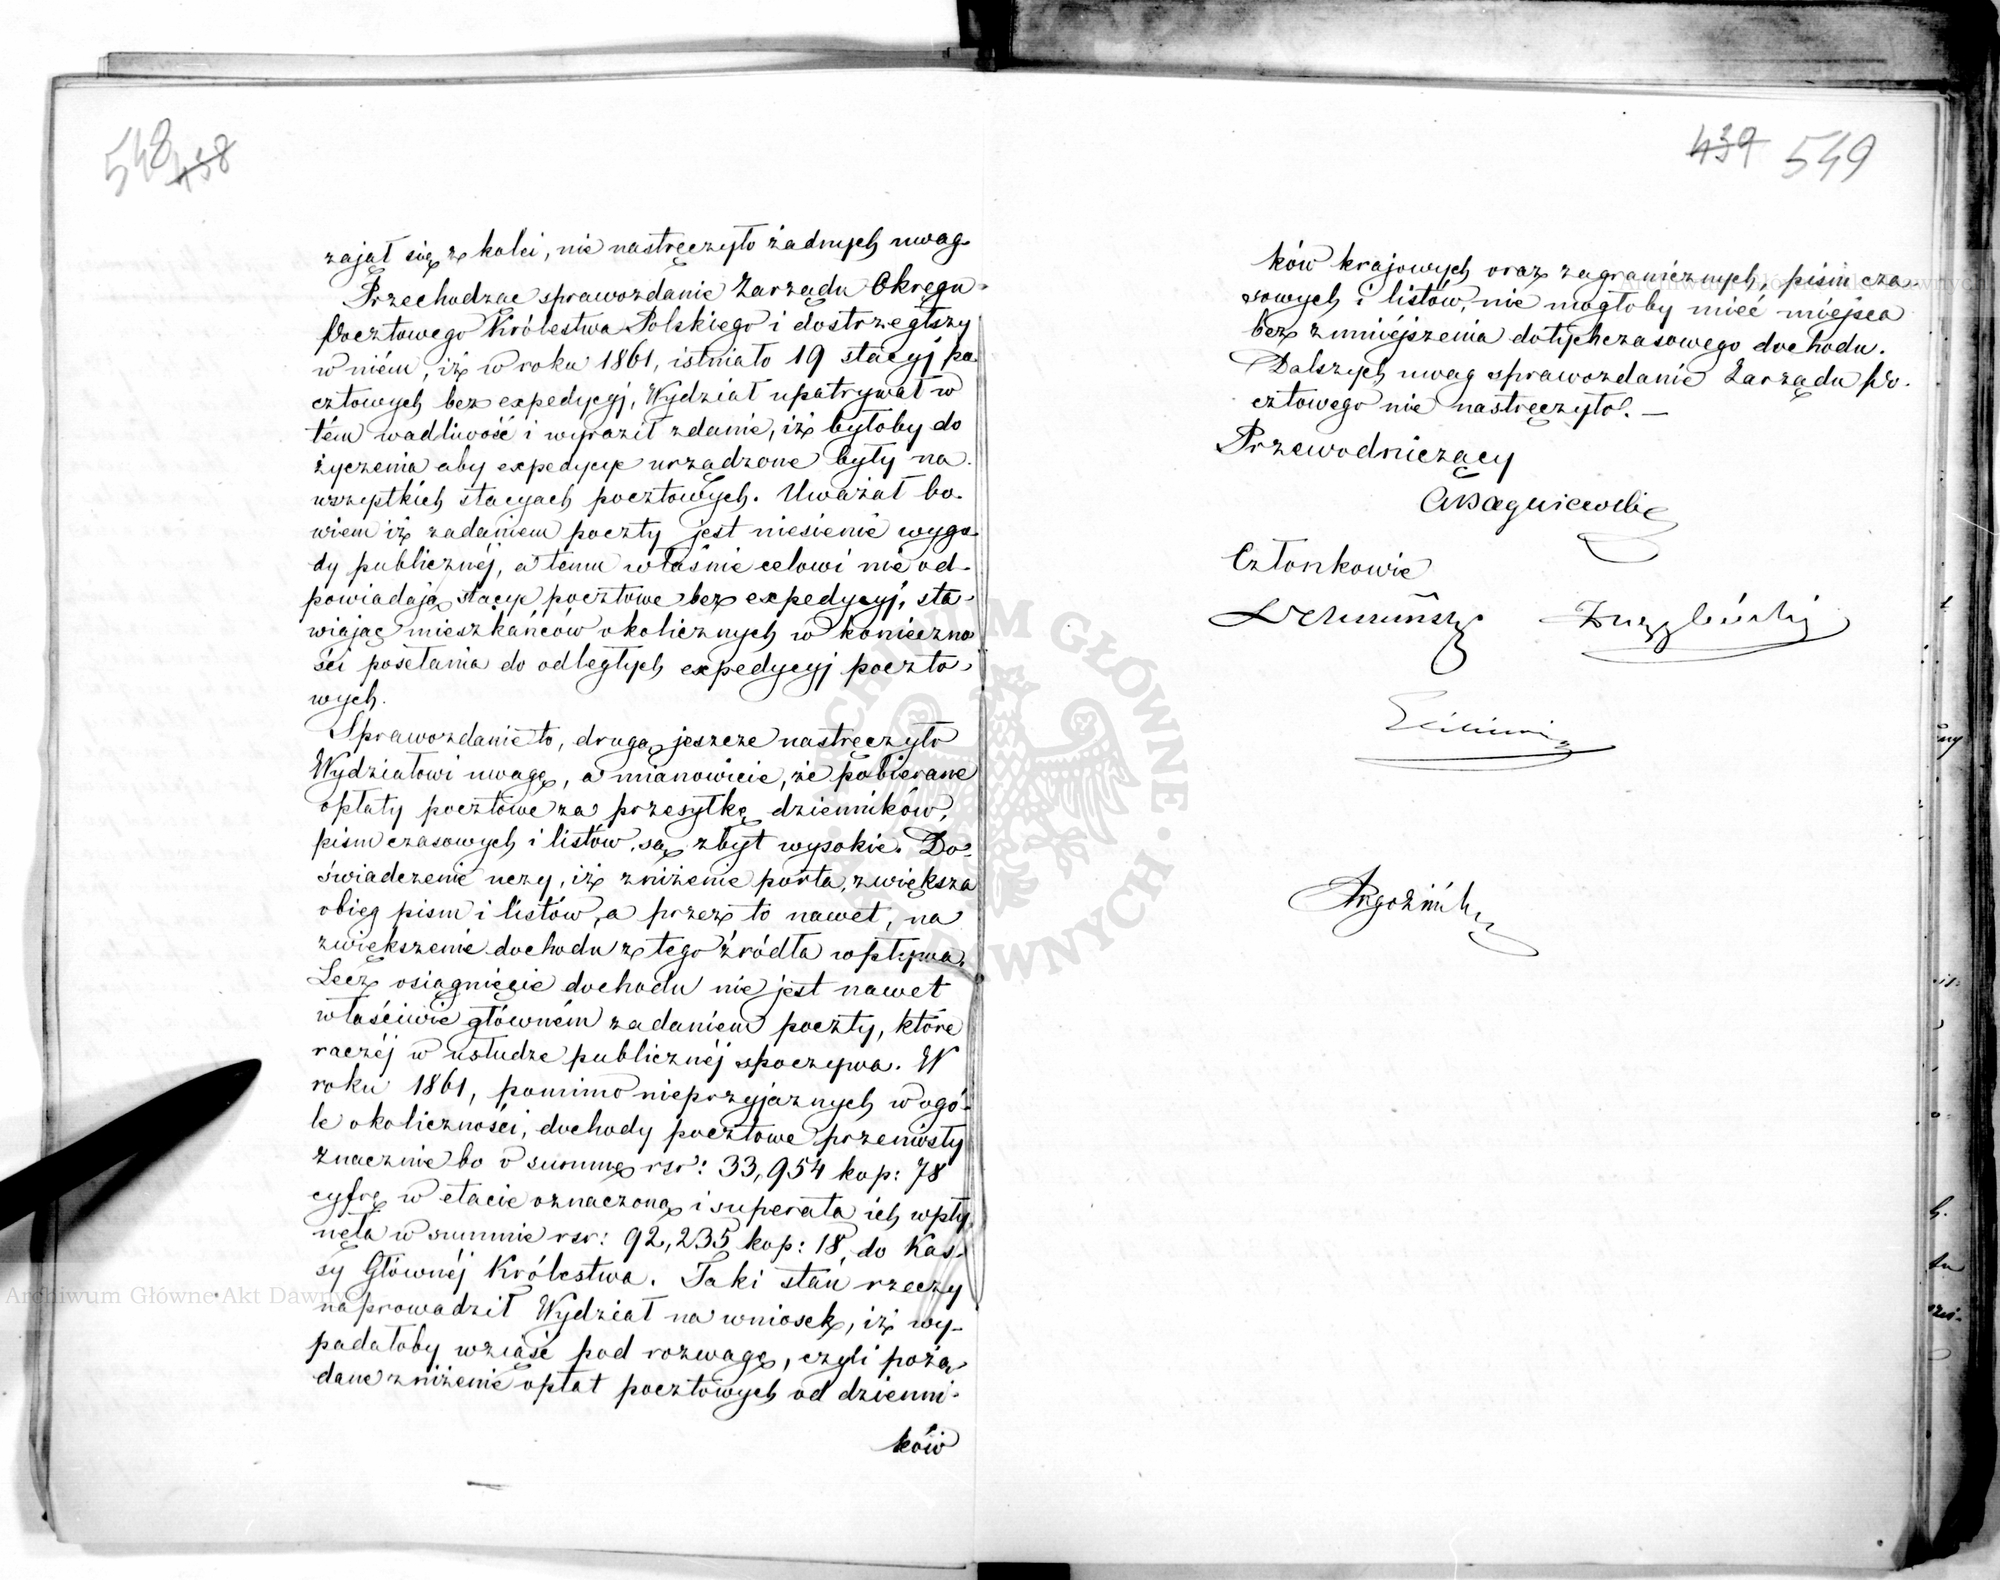 548 438
zajął się z kolei, nie nastręczyło żadnych uwag.
Przechodząc sprawozdanie Zarządu Okręgu
Pocztowego Królestwa Polskiego i dostrzegłszy
w niém, iż w roku 1861, istniało 19 stacyj po-
cztowych bez expedycyj, Wydział upatrywał w
tém wadliwość i wyraził zdanie, iż byłoby do
życzenia aby expedycye urządzone były na
wszystkich stacyach pocztowych. Uważał bo-
wiem iż zadaniem poczty jest niesienie wygo-
dy publicznéj, a temu właśnie celowi nie od-
powiadają stacye pocztowe bez expedycyj, sta-
wiając mieszkańców okolicznych w konieczno-
ści posełania do odległych expedycyj poczto-
wych.
Sprawozdanie to, drugą jeszcze nastręczyło
Wydziałowi uwagę, a mianowicie, że pobierane
opłaty pocztowe za przesyłkę dzienników,
pism czasowych i listów, są zbyt wysokie. Do-
świadczenie uczy, iż zniżenie porta, zwiększa
obieg pism i listów, a przez to nawet, na
zwiększenie dochodu z tego źródła wpływa.
Lecz osiągnięcie dochodu nie jest nawet
właściwie główném zadaniem poczty, które
raczéj w usłudze publicznéj spoczywa. W
roku 1861, pomimo nieprzyjaznych w ogó-
le okoliczności, dochody pocztowe przeniosły
znacznie bo o summę rsr: 33,954 kop: 78
cyfrę w etacie oznaczoną i superata ich wpły-
nęła w summie rsr: 92,235 kop: 18, do Kas-
sy Głównéj Królestwa. Taki stan rzeczy
naprowadził Wydział na wniosek, iż wy-
padałoby wziąść pod rozwagę, czyli pożą-
dane zniżenie opłat pocztowych od dzienni-
ków
439 549
ków krajowych oraz zagranicznych, pism cza-
sowych i listów, nie mogłoby mieć miejsca
bez zmniejszenia dotychczasowego dochodu.
Dalszych uwag sprawozdanie Zarządu Po-
cztowego nie nastręczyło. —
Przewodniczący
Członkowie
Archiwum Główne Akt Dawnych